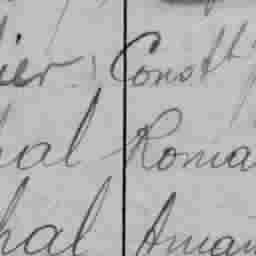 ier Constt
hal Roma
hal Aman